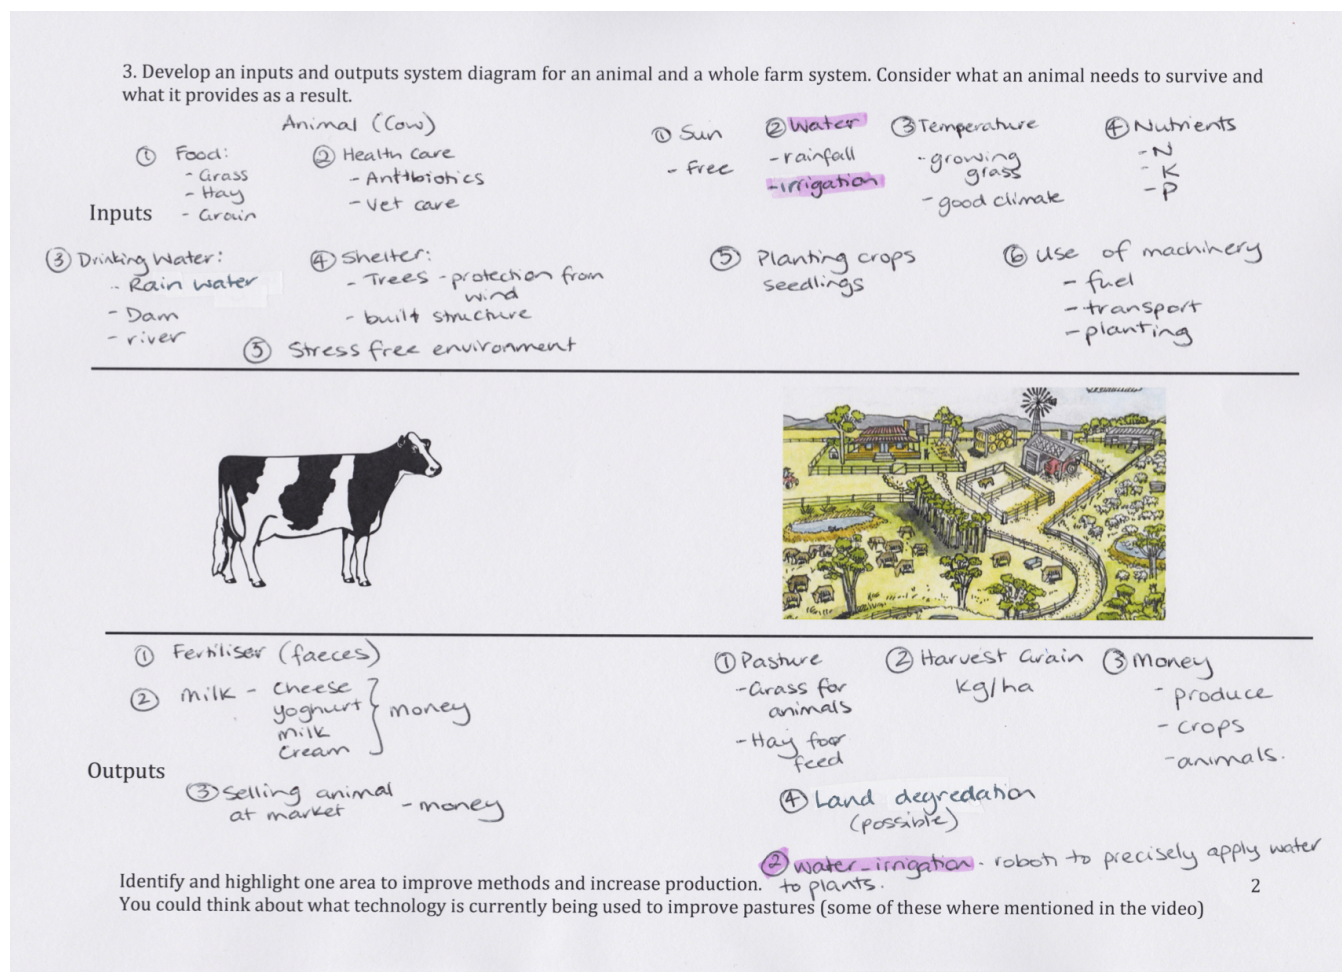 3. Develop an inputs and outputs system diagram for an animal and a whole farm system. Consider what an animal needs to survive and
what it provides as a result.
Animal (Cow)
① Food:
- Grass
- Hay
- Grain
② Health Care
- Antibiotics
- Vet care
Inputs
③ Drinking Water:
- Rain water
- Dam
- river
④ Shelter:
- Trees - protection from
wind
- built structure
⑤ Stress free environment
① Sun
- Free
② Water
- rainfall
- irrigation
③ Temperature
- growing
grass
- good climate
④ Nutrients
- N
- K
- P
⑤ Planting crops
seedlings
⑥ Use of machinery
- fuel
- transport
- planting
① Fertiliser (faeces)
② Milk - Cheese
yoghurt
milk
cream
} money
Outputs
③ Selling animal
at market - money
① Pasture
- Grass for
animals
- Hay for
feed
② Harvest Grain
kg/ha
③ Money
- produce
- crops
- animals.
④ Land degredation
(possible)
② water-irrigation - robots to precisely apply water
to plants.
Identify and highlight one area to improve methods and increase production.
2
You could think about what technology is currently being used to improve pastures (some of these where mentioned in the video)